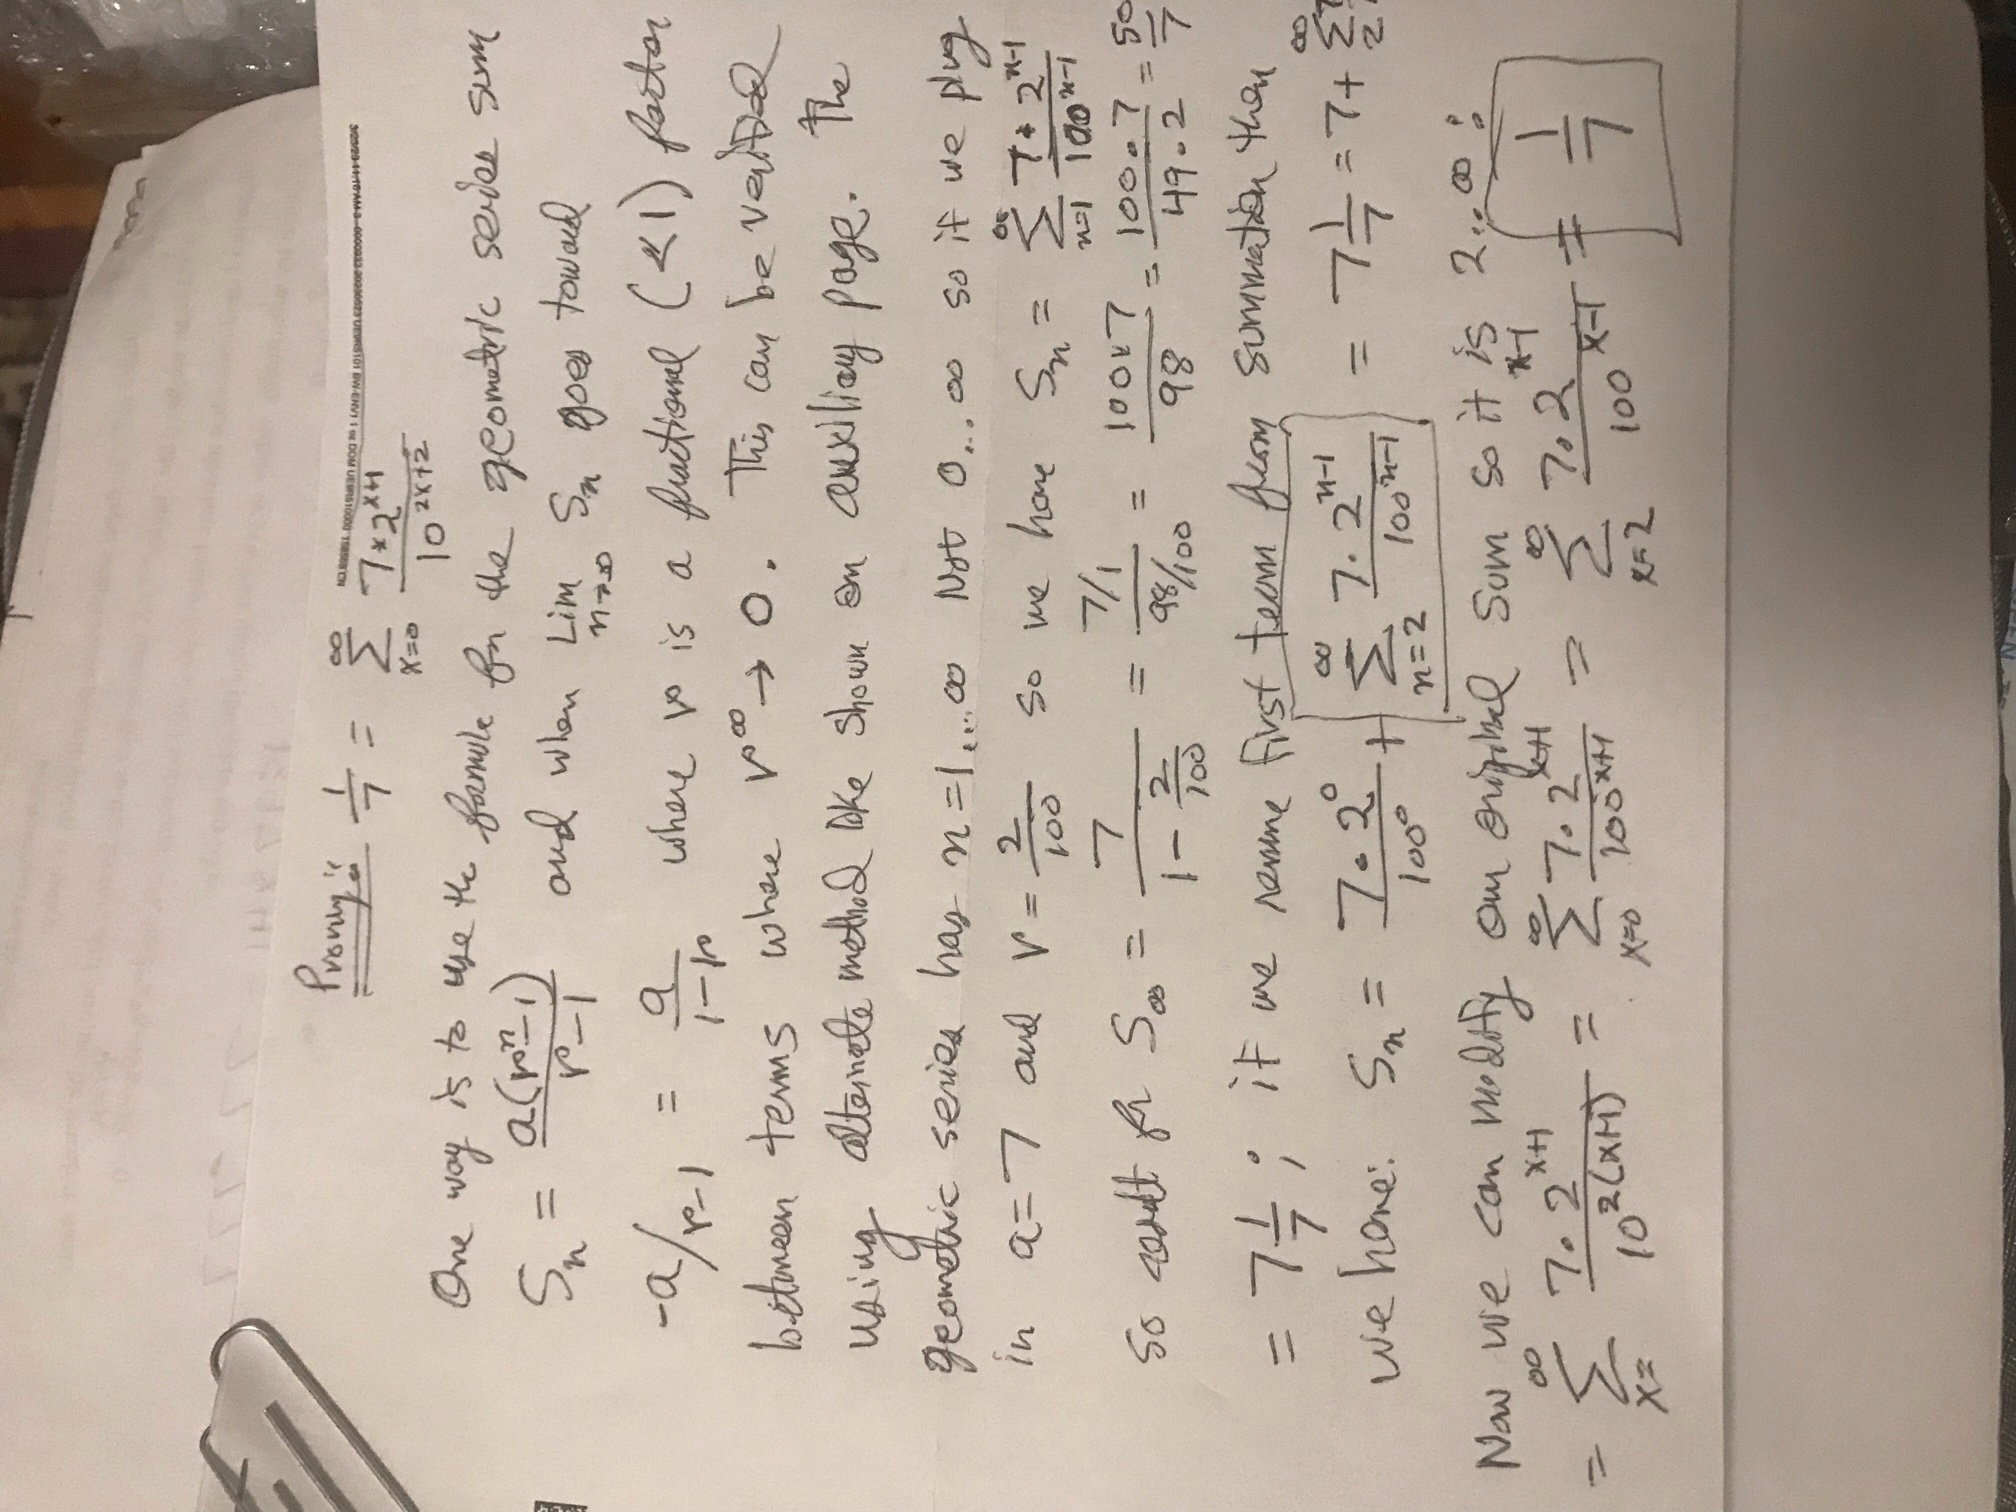 Proving: 1/7 = ∞∑x=0 7*2^x+1 / 10^2x+2
One way is to use the formula for the geometric series sum
Sn = a(r^n-1) / r-1 and when Lim n→∞ Sn goes toward
-a/r-1 = a / 1-r where r is a fractional (<1) factor
between terms where r^∞ → 0. This can be verified
using alternate method like shown on auxiliary page. The
geometric series has n=1...∞ Not 0...∞ so if we plug
in a=7 and r = 2/100 so we have Sn = ∞∑n=1 7•2^n-1 / 100^n-1
so result for S∞ = 7 / 1 - 2/100 = 7/1 / 98/100 = 100x7 / 98 = 100•7 / 49•2 = 50 / 7
= 7 1/7 ; if we remove first term from summation then
we have: Sn = 7•2^0 / 100^0 + ∞∑n=2 7•2^n-1 / 100^n-1 = 7 1/7 = 7 + ∞∑
Now we can modify our original sum so it is 2..∞:
= ∞∑x= 7•2^x+1 / 10^2(x+1) = ∞∑x=0 7•2^x+1 / 100^x+1 = ∞∑x=2 7•2^x-1 / 100^x-1 = 1/7